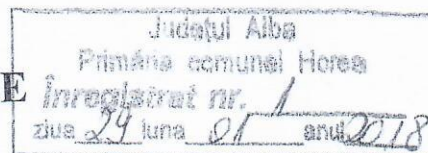 Județul Alba
Primăria comunei Horea
E Înregistrat nr. 1
ziua 29 luna 01 anul 2018